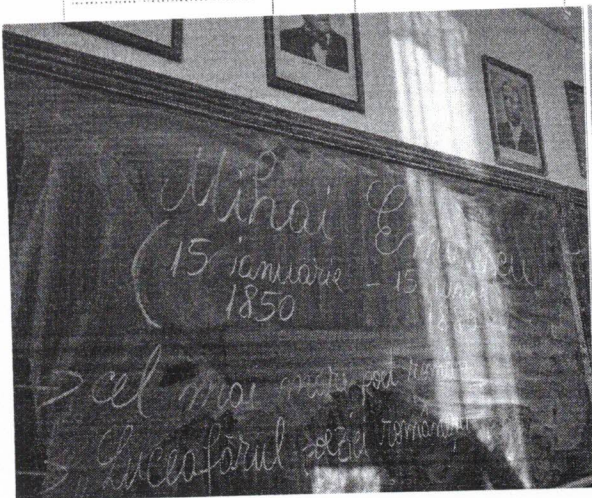 Mihai Eminescu
(15 ianuarie - 15 iunie
1850
→ cel mai mare poet român
→ "Luceafărul poeziei românești